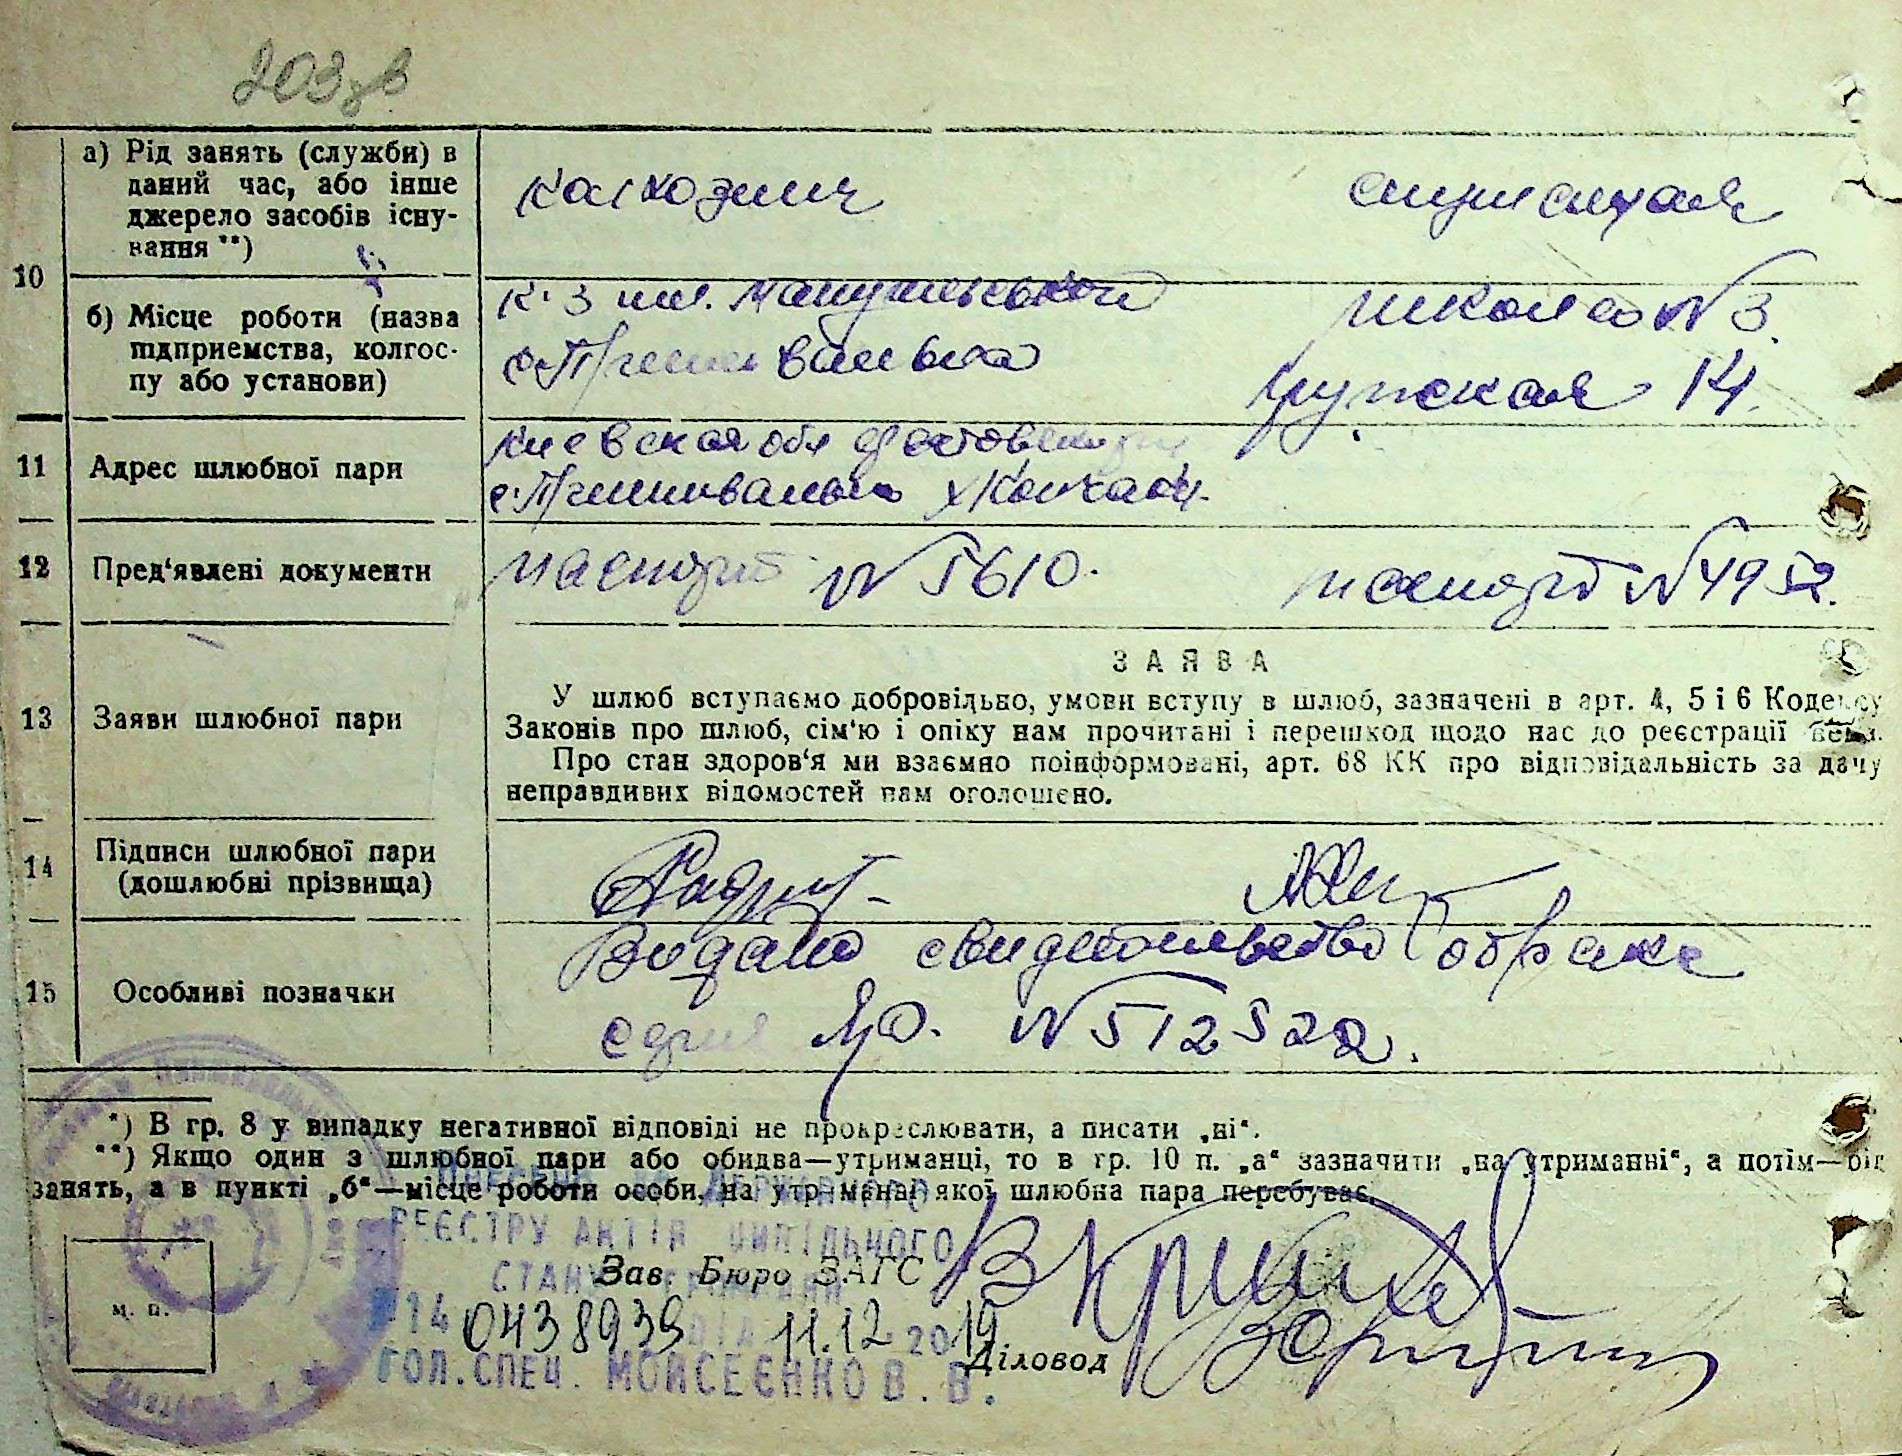 203зв
10
а) Рід занять (служби) в
даний час, або інше
джерело засобів існу-
вання **)
колхозник
б) Місце роботи (назва
підприємства, колгос-
пу або установи)
к-з им. Мануильского
школа №3
с.
14
11
Адрес шлюбної пари
Киевская обл
с.
12
Пред'явлені документи
паспорт №5610.
паспорт №4952.
13
Заяви шлюбної пари
ЗАЯВА
У шлюб вступаємо добровільно, умови вступу в шлюб, зазначені в арт. 4, 5 і 6 Кодексу
Законів про шлюб, сім'ю і опіку нам прочитані і перешкод щодо нас до реєстрації нема.
Про стан здоров'я ми взаємно поінформовані, арт. 68 КК про відповідальність за дачу
неправдивих відомостей нам оголошено.
14
Підписи шлюбної пари
(дошлюбні прізвища)
15
Особливі позначки
Видано свидетельство о браке
серия ЯЮ. №512522.
*) В гр. 8 у випадку негативної відповіді не прокреслювати, а писати „ні“.
**) Якщо один з шлюбної пари або обидва—утриманці, то в гр. 10 п. „а“ зазначити „на утриманні“, а потім—рід
занять, а в пункті „б“—місце роботи особи, на утриманні якої шлюбна пара перебуває.
ДЕРЖАВНОГО
РЕЄСТРУ АКТІВ ЦИВІЛЬНОГО
СТАНУ ГРОМАДЯН
Зав. Бюро ЗАГС
м. п.
0438939 11.12 2019
Діловод
ГОЛ. СПЕЦ. МОЙСЕЄНКО В. В.